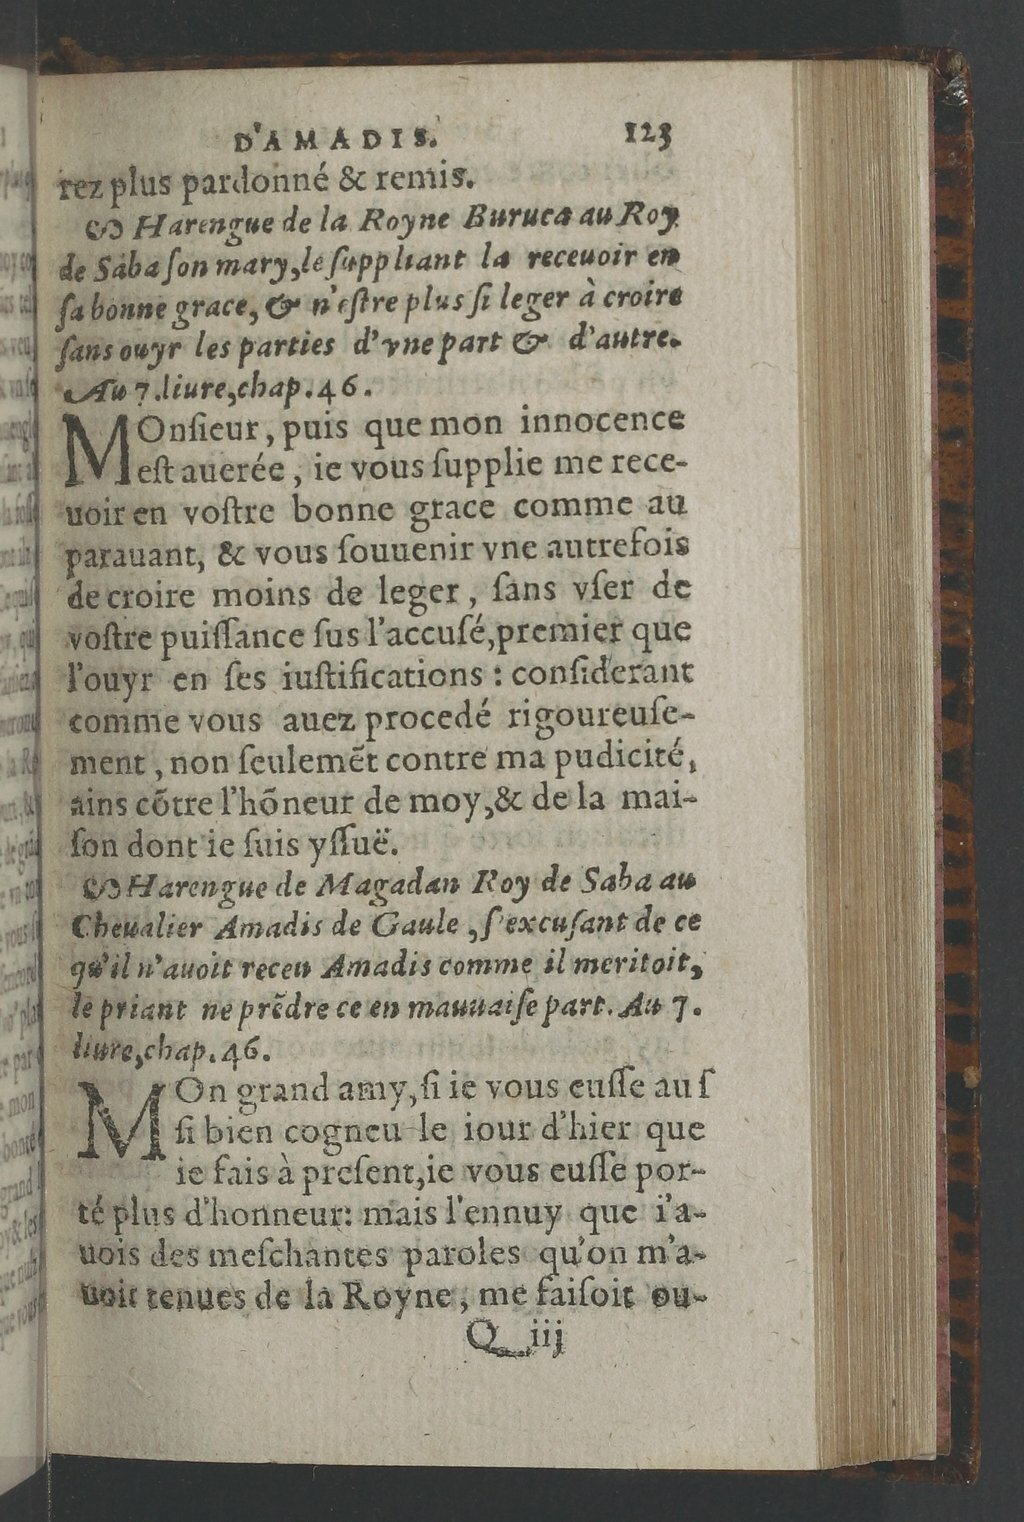 D'AMADIS. 123
rez plus pardonné & remis.
Harengue de la Royne Buruca au Roy
de Saba ſon mary, le ſuppliant la receuoir en
ſa bonne grace, & n'eſtre plus ſi leger à croire
ſans ouyr les parties d'vne part & d'autre.
Au 7. liure, chap. 46.
MOnſieur, puis que mon innocence
eſt auerée, ie vous ſupplie me rece-
uoir en voſtre bonne grace comme au
parauant, & vous ſouuenir vne autrefois
de croire moins de leger, ſans vſer de
voſtre puiſſance ſus l'accuſé, premier que
l'ouyr en ſes iuſtifications : conſiderant
comme vous auez procedé rigoureuſe-
ment, non ſeulemẽt contre ma pudicité,
ains cõtre l'hõneur de moy, & de la mai-
ſon dont ie ſuis yſſuë.
Harengue de Magadan Roy de Saba au
Cheualier Amadis de Gaule, ſ'excuſant de ce
qu'il n'auoit receu Amadis comme il meritoit,
le priant ne prẽdre ce en mauuaiſe part. Au 7.
liure, chap. 46.
MOn grand amy, ſi ie vous euſſe auſ
ſi bien cogneu le iour d'hier que
ie fais à preſent, ie vous euſſe por-
té plus d'honneur: mais l'ennuy que i'a-
uois des meſchantes paroles qu'on m'a-
uoit tenues de la Royne, me faiſoit ou-
Q iij